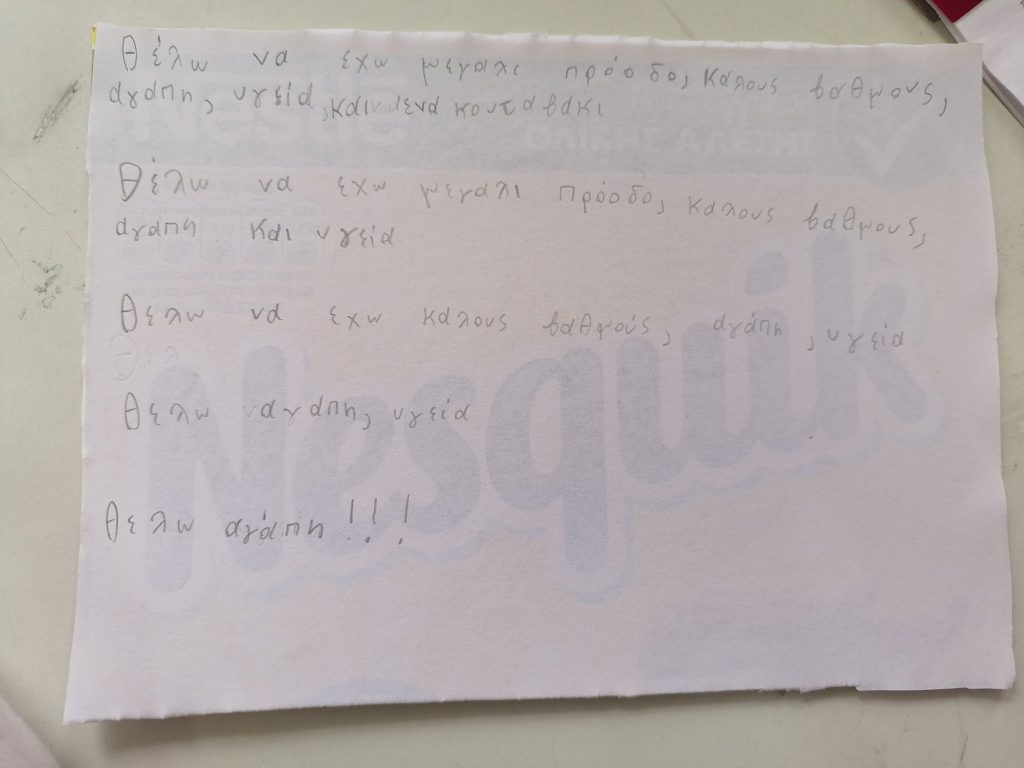 Θέλω να έχω μεγαλι πρόοδο, καλους βαθμους,
αγάπη, υγεία, και ένα κουταβάκι
Θέλω να εχω μεγαλι πρόοδο, καλους βαθμους,
αγαπη και υγεία
Θελω να εχω καλους βαθμούς, αγάπη, υγεία
Θελω αγάπη, υγεία
Θελω αγάπη!!!
Nesquik